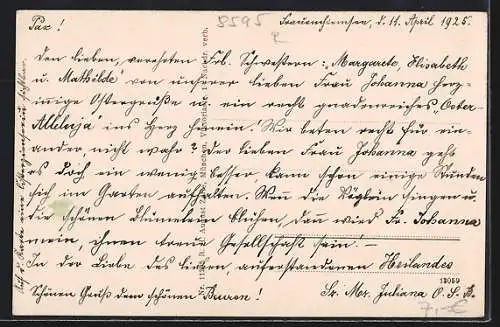 Pax!
8595
Frauenchiemsee, d. 11. April 1925.
Den lieben, verehrten Frb. Schwestern: „Margarete, Elisabeth
u. Mathilde" von unserer lieben Frau Johanna herz-
innige Ostergrüße u. ein recht gnadenreiches „Oster-
Alleluja" ins Herz hinein! Wir beten recht für ein-
ander nicht wahr? Der lieben Frau Johanna geht
es doch ein wenig besser kann schon einige Stunden
sich im Garten aufhalten. Wenn die Vöglein singen u.
die schönen Blümelein blühen, dann wird Fr. Johanna
mein, ihnen treue Gesellschaft sein! –
In der Liebe des lieben, auferstandenen Heilandes
Schönen Gruß dem schönen Bayern!
Sr. Mr. Juliana O. S. B.
12059
7,-€
München, Viktoriastr. 1
Nachdr. verb.